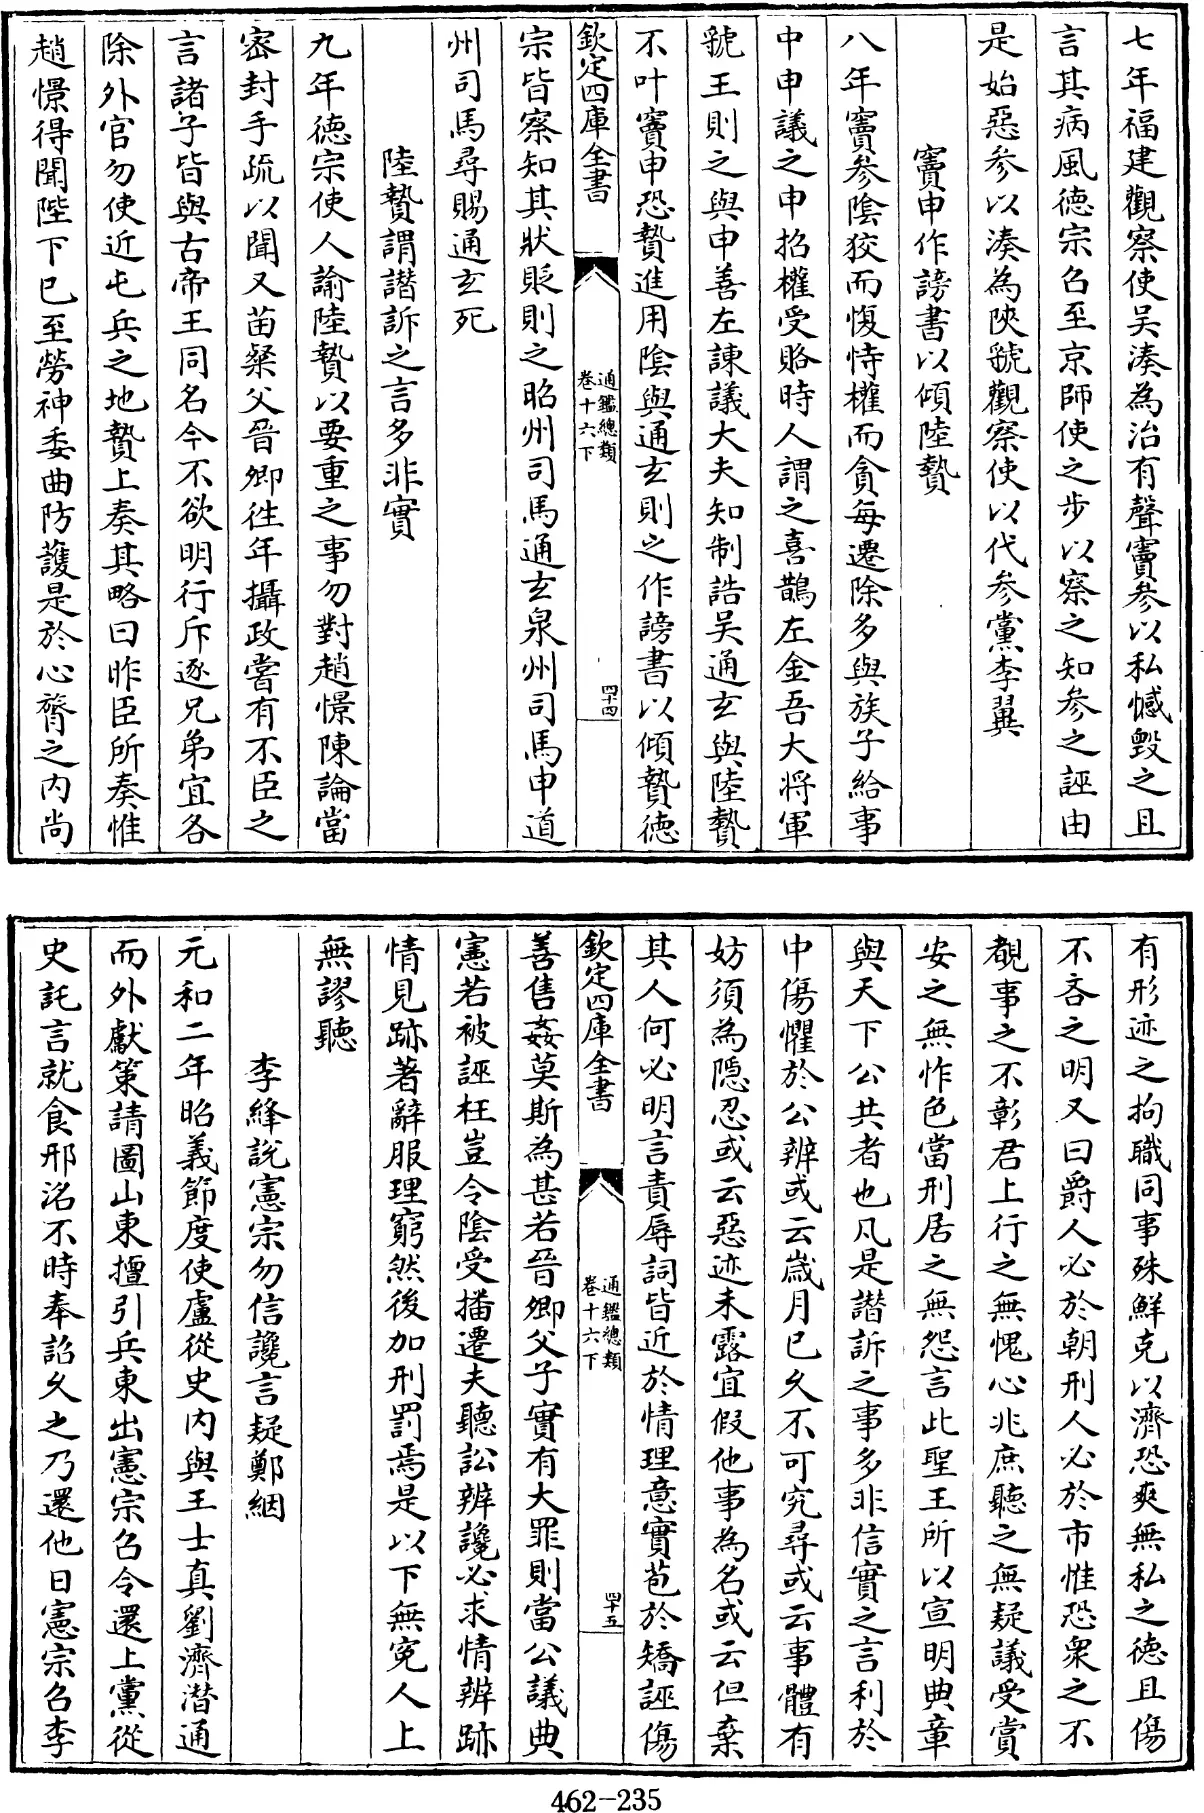 七年福建觀察使吴湊為治有聲竇參以私憾毁之且
言其病風徳宗召至京師使之步以察之知參之誣由
是始惡參以湊為陜虢觀察使以代參黨李翼
竇申作謗書以傾陸贄
八年竇參陰狡而愎恃權而貪每遷除多與族子給事
中申議之申招權受賂時人謂之喜鵲左金吾大將軍
虢王則之與申善左諫議大夫知制誥吴通玄與陸贄
不叶竇申恐贄進用陰與通玄則之作謗書以傾贄徳
欽定四庫全書
通鑑總類
卷十六下
四十四
宗皆察知其狀貶則之昭州司馬通玄泉州司馬申道
州司馬尋賜通玄死
陸贄謂譖訴之言多非實
九年徳宗使人諭陸贄以要重之事勿對趙憬陳論當
密封手疏以聞又苗粲父晉卿往年攝政嘗有不臣之
言諸子皆與古帝王同名今不欲明行斥逐兄弟宜各
除外官勿使近屯兵之地贄上奏其略曰昨臣所奏惟
趙憬得聞陛下已至勞神委曲防護是於心膂之内尚
有形迹之拘職同事殊鮮克以濟恐爽無私之徳且傷
不吝之明又曰爵人必於朝刑人必於市惟恐衆之不
覩事之不彰君上行之無愧心兆庶聽之無疑議受賞
安之無怍色當刑居之無怨言此聖王所以宣明典章
與天下公共者也凡是譖訴之事多非信實之言利於
中傷懼於公辨或云嵗月已久不可究尋或云事體有
妨須為隠忍或云惡迹未露宜假他事為名或云但棄
其人何必明言責辱詞皆近於情理意實苞於矯誣傷
欽定四庫全書
通鑑總類
卷十六下
四十五
善售姦莫斯為甚若晉卿父子實有大罪則當公議典
憲若被誣枉豈令陰受播遷夫聽訟辨讒必求情辨跡
情見跡著辭服理窮然後加刑罰焉是以下無寃人上
無謬聽
李絳説憲宗勿信讒言疑鄭絪
元和二年昭義節度使盧從史内與王士真劉濟潜通
而外獻策請圖山東擅引兵東出憲宗召令還上黨從
史託言就食邢洺不時奉詔久之乃還他日憲宗召李
462-235